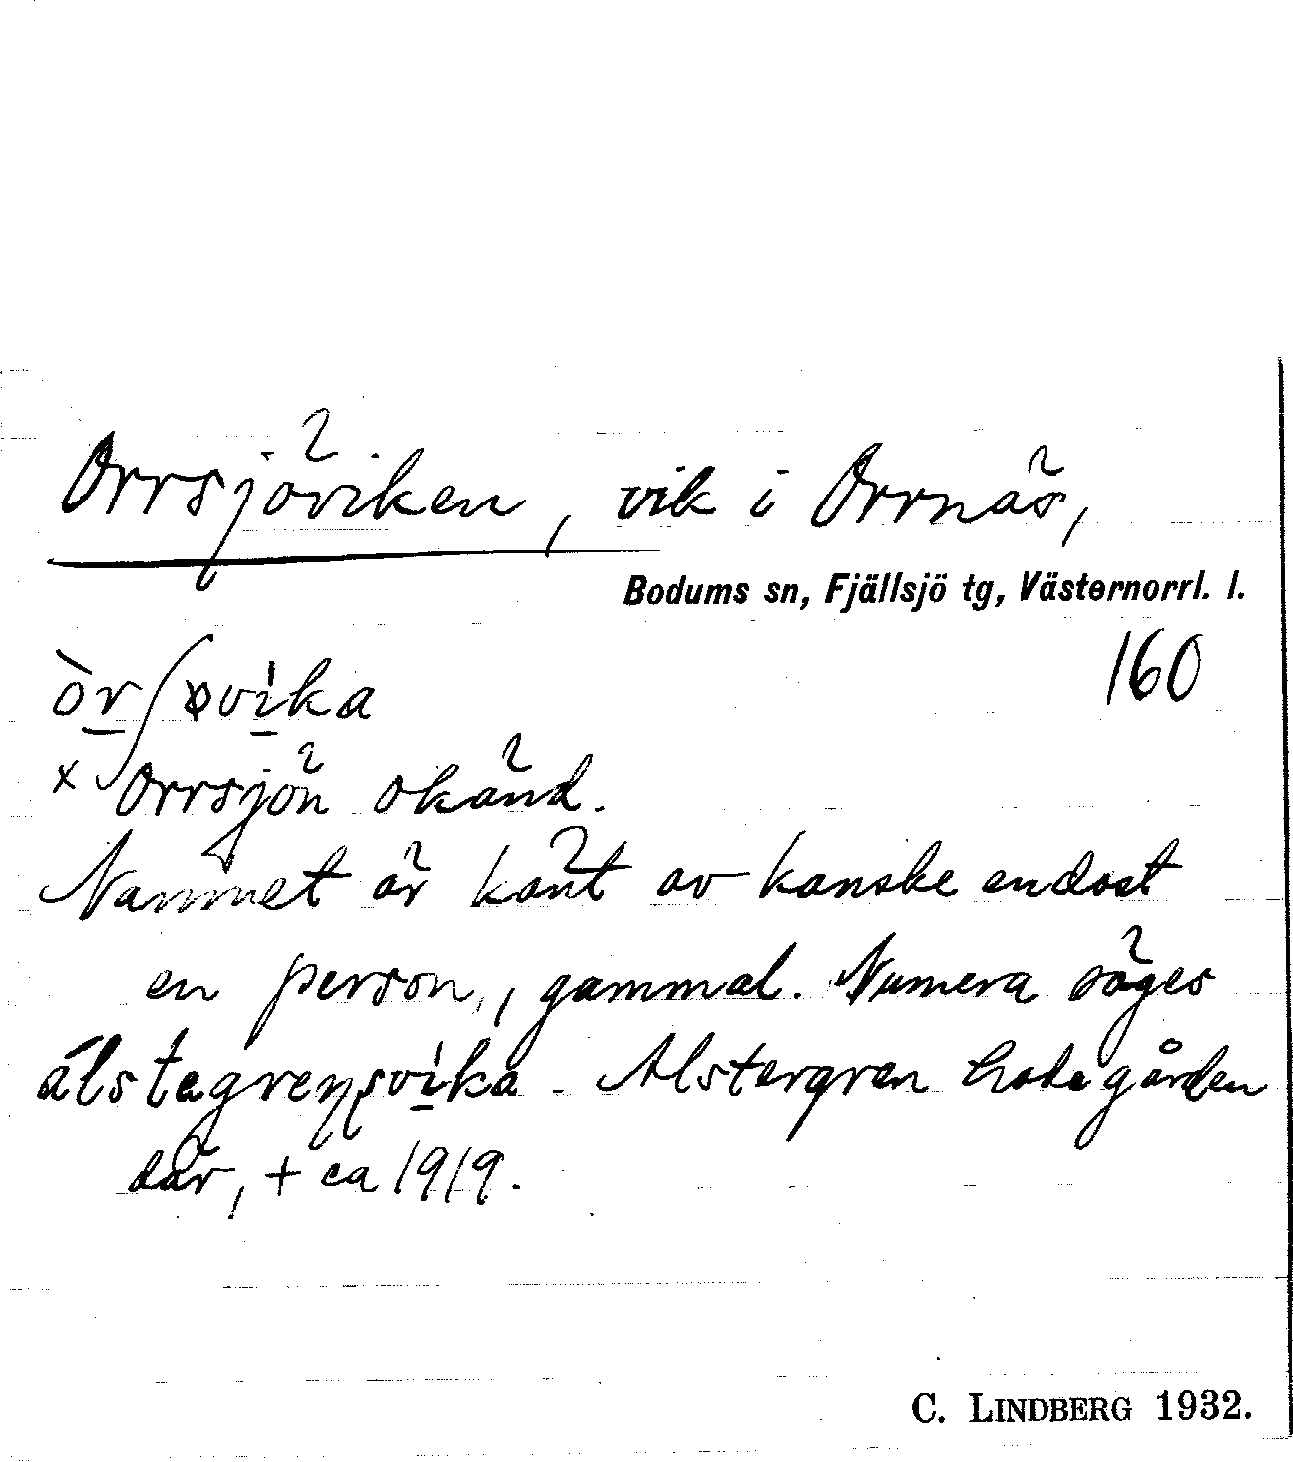 Orrsjöviken, vik i Orrnäs,
Bodums sn, Fjällsjö tg, Västernorrl. l.
160
òrʃøvìka
x Orrsjön okänd.
Namnet är känt av kanske endast
en person, gammal. Numera säges
álstagreŋsvìka - Alstergren hade gården
där, + ca 1919.
C. LINDBERG 1932.